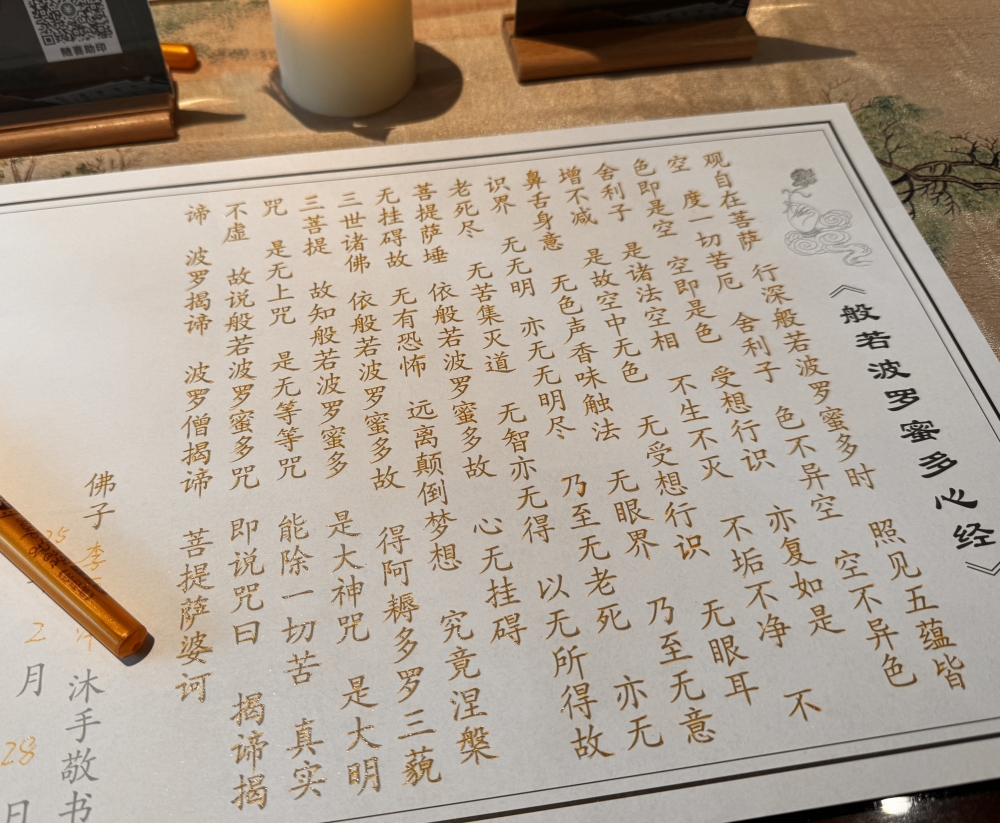 随喜助印
《般若波罗蜜多心经》
观自在菩萨 行深般若波罗蜜多时 照见五蕴皆
空 度一切苦厄 舍利子 色不异空 空不异色
色即是空 空即是色 受想行识 亦复如是
舍利子 是诸法空相 不生不灭 不垢不净 不
增不减 是故空中无色 无受想行识 无眼耳
鼻舌身意 无色声香味触法 无眼界 乃至无意
识界 无无明 亦无无明尽 乃至无老死 亦无
老死尽 无苦集灭道 无智亦无得 以无所得故
菩提萨埵 依般若波罗蜜多故 心无挂碍
无挂碍故 无有恐怖 远离颠倒梦想 究竟涅槃
三世诸佛 依般若波罗蜜多故 得阿耨多罗三藐
三菩提 故知般若波罗蜜多 是大神咒 是大明
咒 是无上咒 是无等等咒 能除一切苦 真实
不虚 故说般若波罗蜜多咒 即说咒曰 揭谛揭
谛 波罗揭谛 波罗僧揭谛 菩提萨婆诃
佛子 李 沐手敬书
25 2月28日